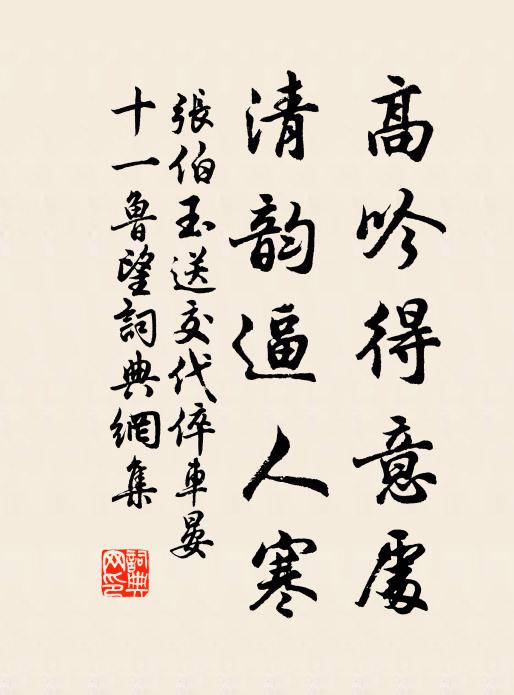 高吟得意處
清韵逼人寒
張伯玉送交代倅車晏
十一魯望詞典網集
詞典网印